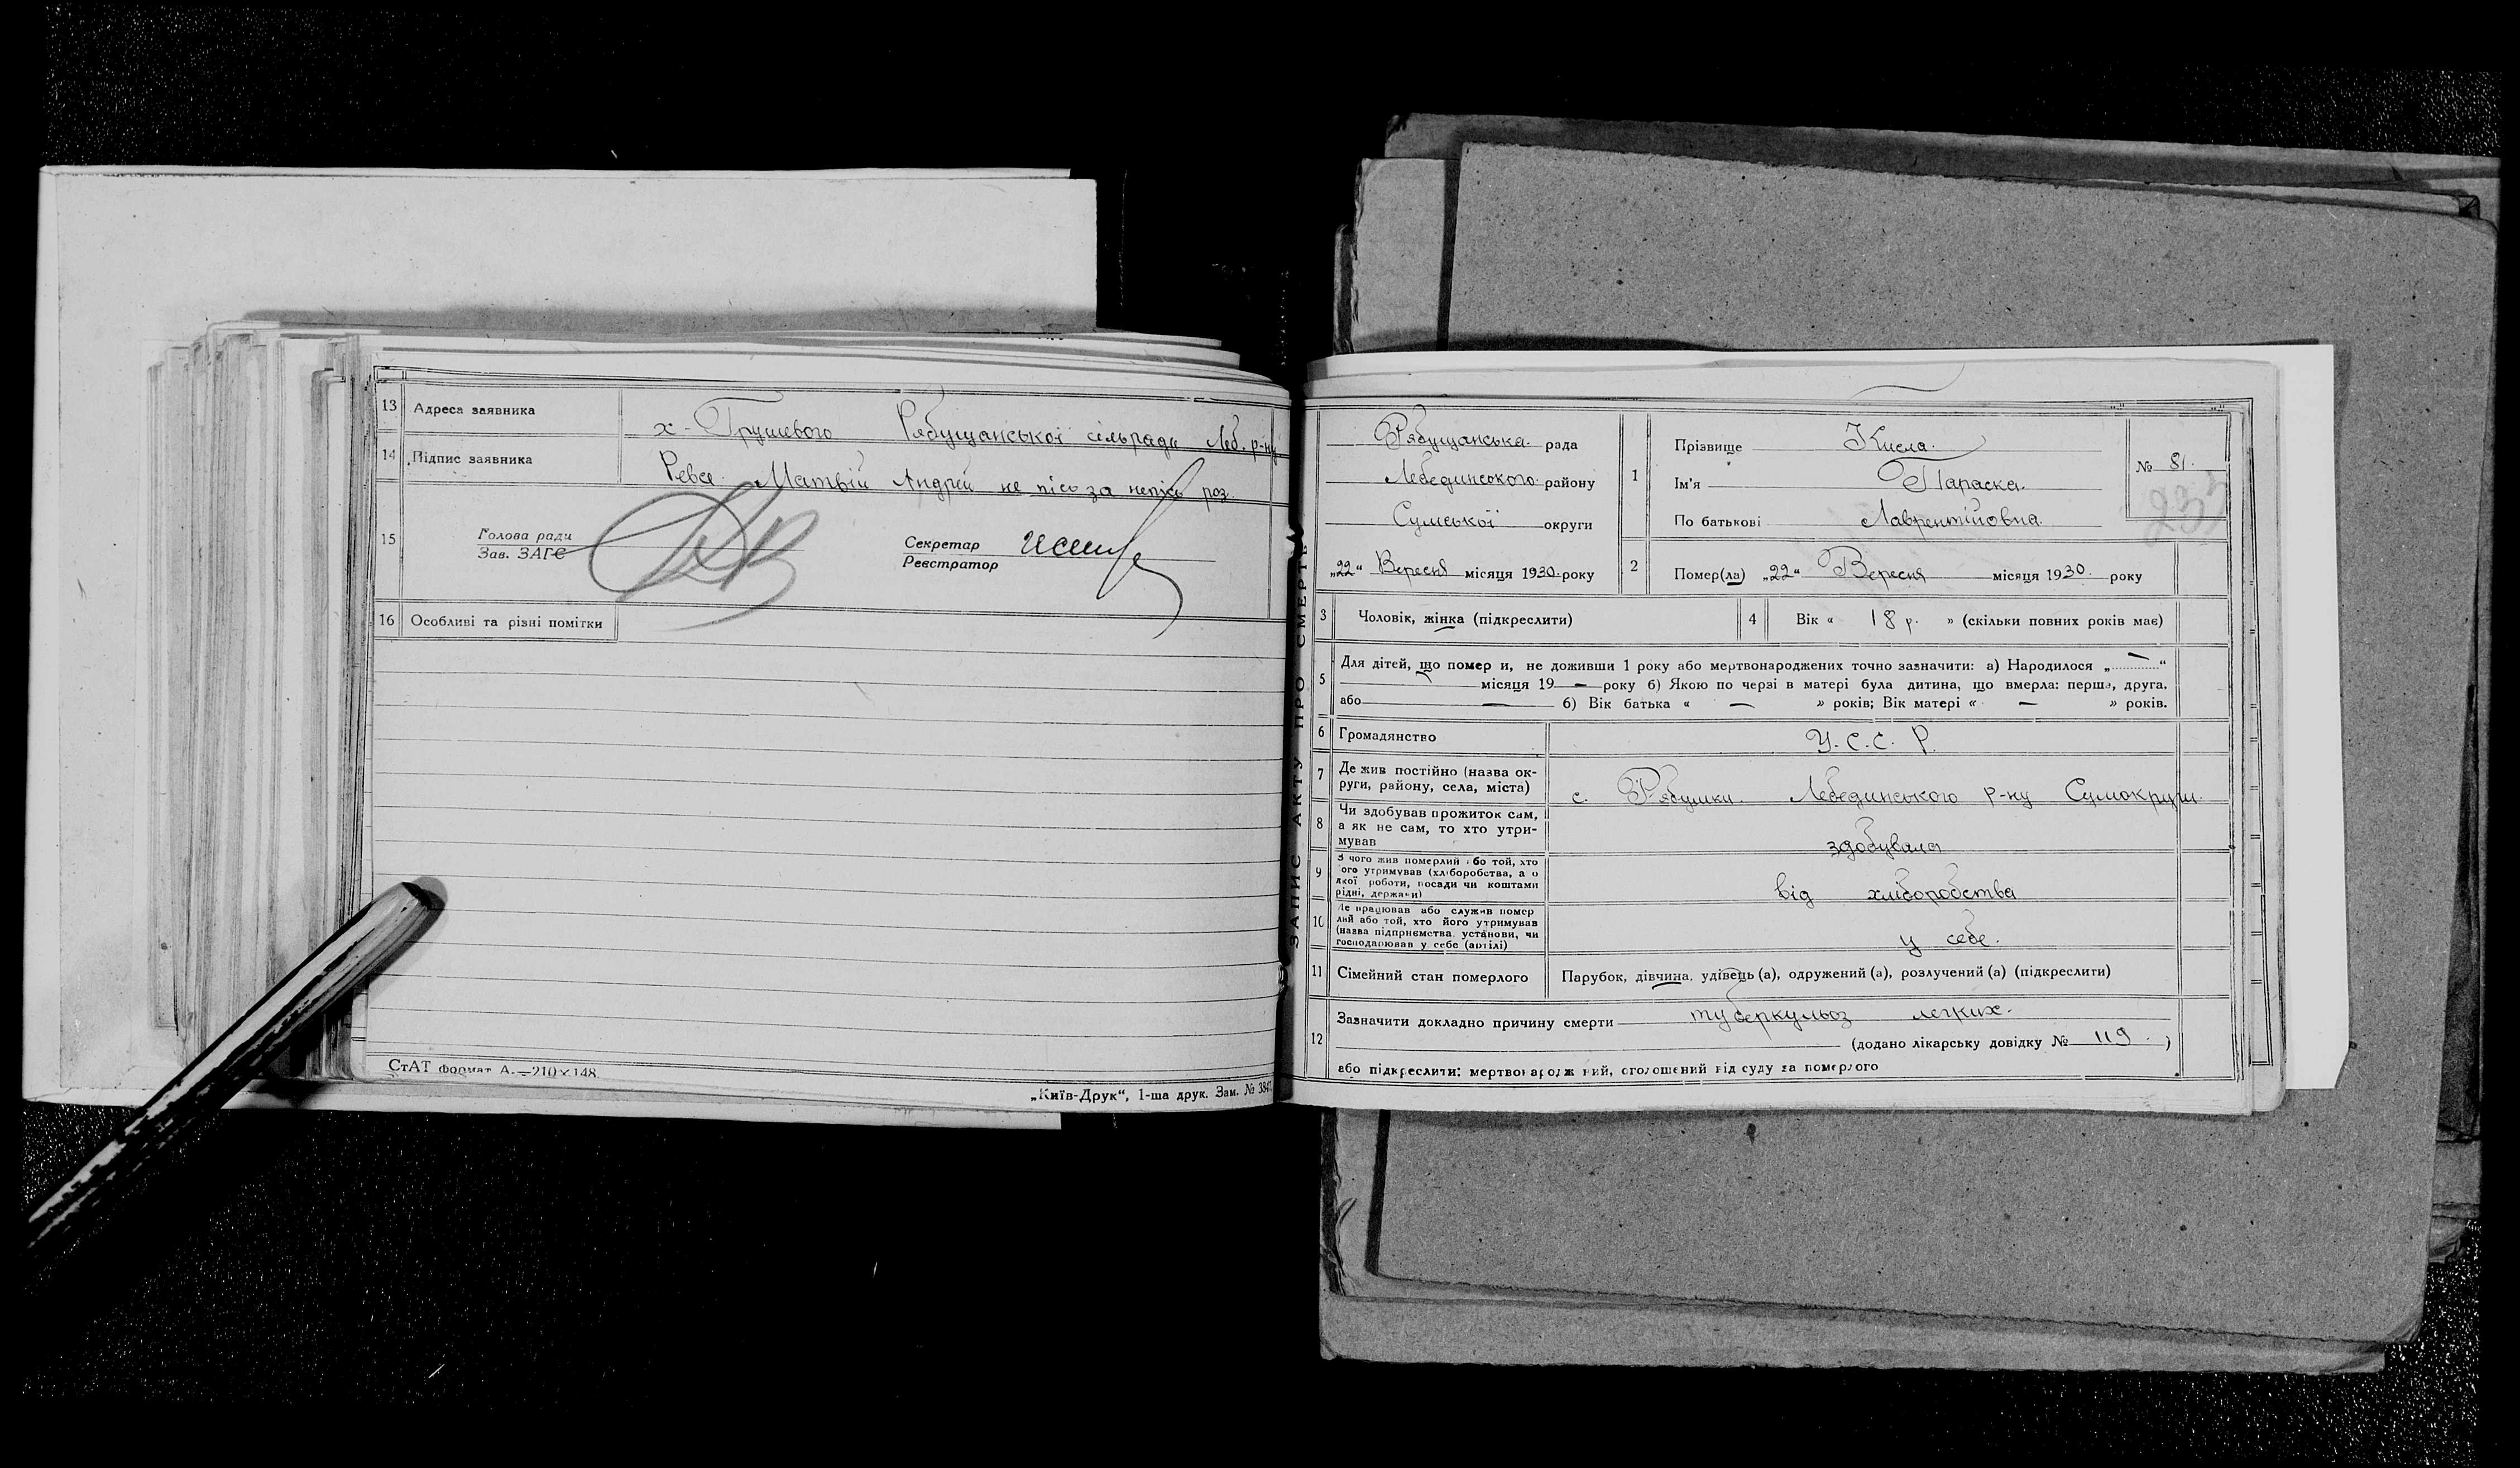 13 Адреса заявника х-Грушевого Рябущанської сільради Леб. р-ну
14 Підпис заявника Матвій Андрій не
15 Голова ради
Зав. ЗАГС
Секретар
Реєстратор
16 Особливі та різні помітки
СтАТ формат А.—210×148.
„Київ-Друк“, 1-ша друк. Зам. № 384
ЗАПИС АКТУ ПРО СМЕРТЬ
Рябущанська рада
Лебединського району
Сумської округи
„22“ Вересня місяця 1930 року
1 Прізвище Кисла
Ім'я Параска
По батькові Лаврентійовна
№ 81.
233
2 Помер(ла) „22“ Вересня місяця 1930 року
3 Чоловік, жінка (підкреслити)
4 Вік « 18 р. » (скільки повних років має)
5 Для дітей, що помер и, не доживши 1 року або мертвонароджених точно зазначити: а) Народилося „ — “
місяця 19 — року б) Якою по черзі в матері була дитина, що вмерла: перша, друга,
або — б) Вік батька « — » років; Вік матері « — » років.
6 Громадянство У.С.С.Р.
7 Де жив постійно (назва ок-
руги, району, села, міста) с. Рябушки Лебединського р-ну Сумокруги
8 Чи здобував прожиток сам,
а як не сам, то хто утри-
мував здобувала
9 З чого жив померлий або той, хто
ого утримував (хліборобства, а о
якої роботи, посади чи коштами
рідні, держави) від хліборобства
10 Де працював або служив помер
лий або той, хто його утримував
(назва підприємства, установи, чи
господарював у себе (артілі) у себе.
11 Сімейний стан померлого Парубок, дівчина, удівець (а), одружений (а), розлучений (а) (підкреслити)
12 Зазначити докладно причину смерти туберкульоз легких.
(додано лікарську довідку № 119. )
або підкреслити: мертвонароджений, оголошений від суду за померлого